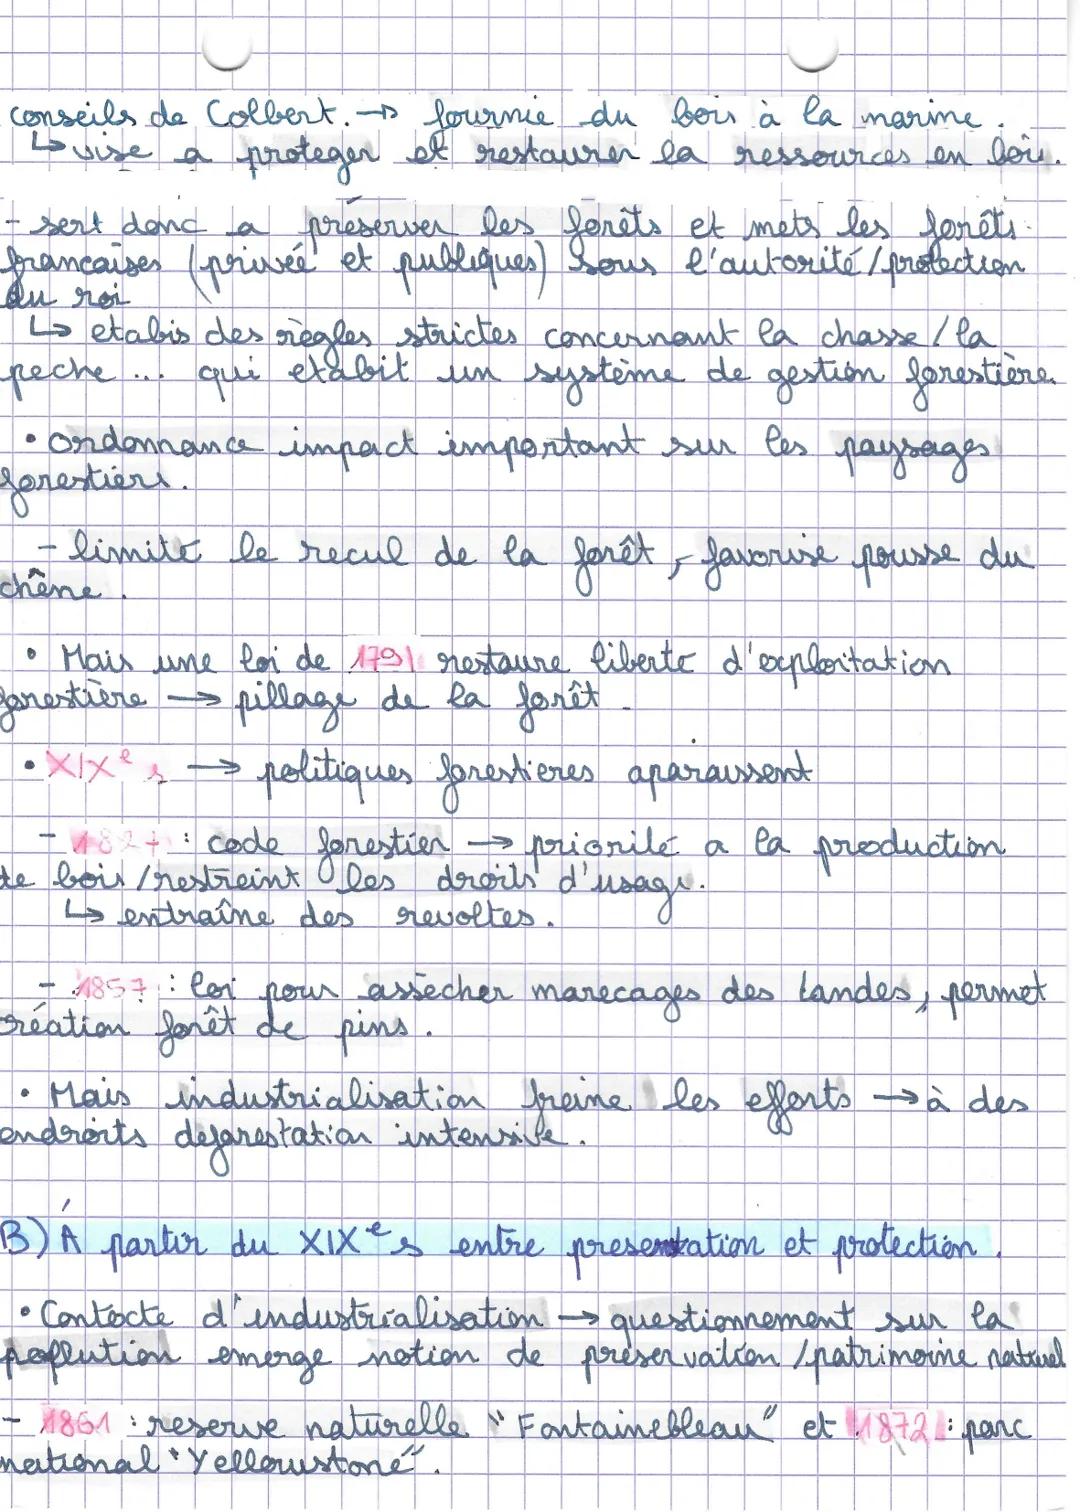 conseils de Colbert. → fournie du bois à la marine.
↳ vise a proteger et restaurer la ressources en bois.
- sert donc a préserver les forêts et mets les forêts
françaises (privée et publiques) sous l'autorité/protection
du roi
↳ etabis des règles strictes concernant la chasse / la
peche ... qui etabit un système de gestion forestière.
• ordonnance impact important sur les paysages
forestiers.
- limite le recul de la forêt, favorise pousse du
chêne.
• Mais une loi de 1791 restaure liberte d'exploitation
forestière → pillage de la forêt.
• XIXe s → politiques forestieres aparaissent
- 1827 : code forestier → priorité a la production
de bois /restreint les droits d'usage.
↳ entraîne des revoltes.
- 1857 : loi pour assècher marecages des Landes, permet
création forêt de pins.
• Mais industrialisation freine les efforts → à des
endroits deforestation intensive.
B) À partir du XIXe s entre presentation et protection.
• Contexte d'industrialisation → questionnement sur la
pollution emerge notion de préservation /patrimoine natruel
- 1861 : reserve naturelle "Fontainebleau" et 1872 : parc
national "Yellowustone".